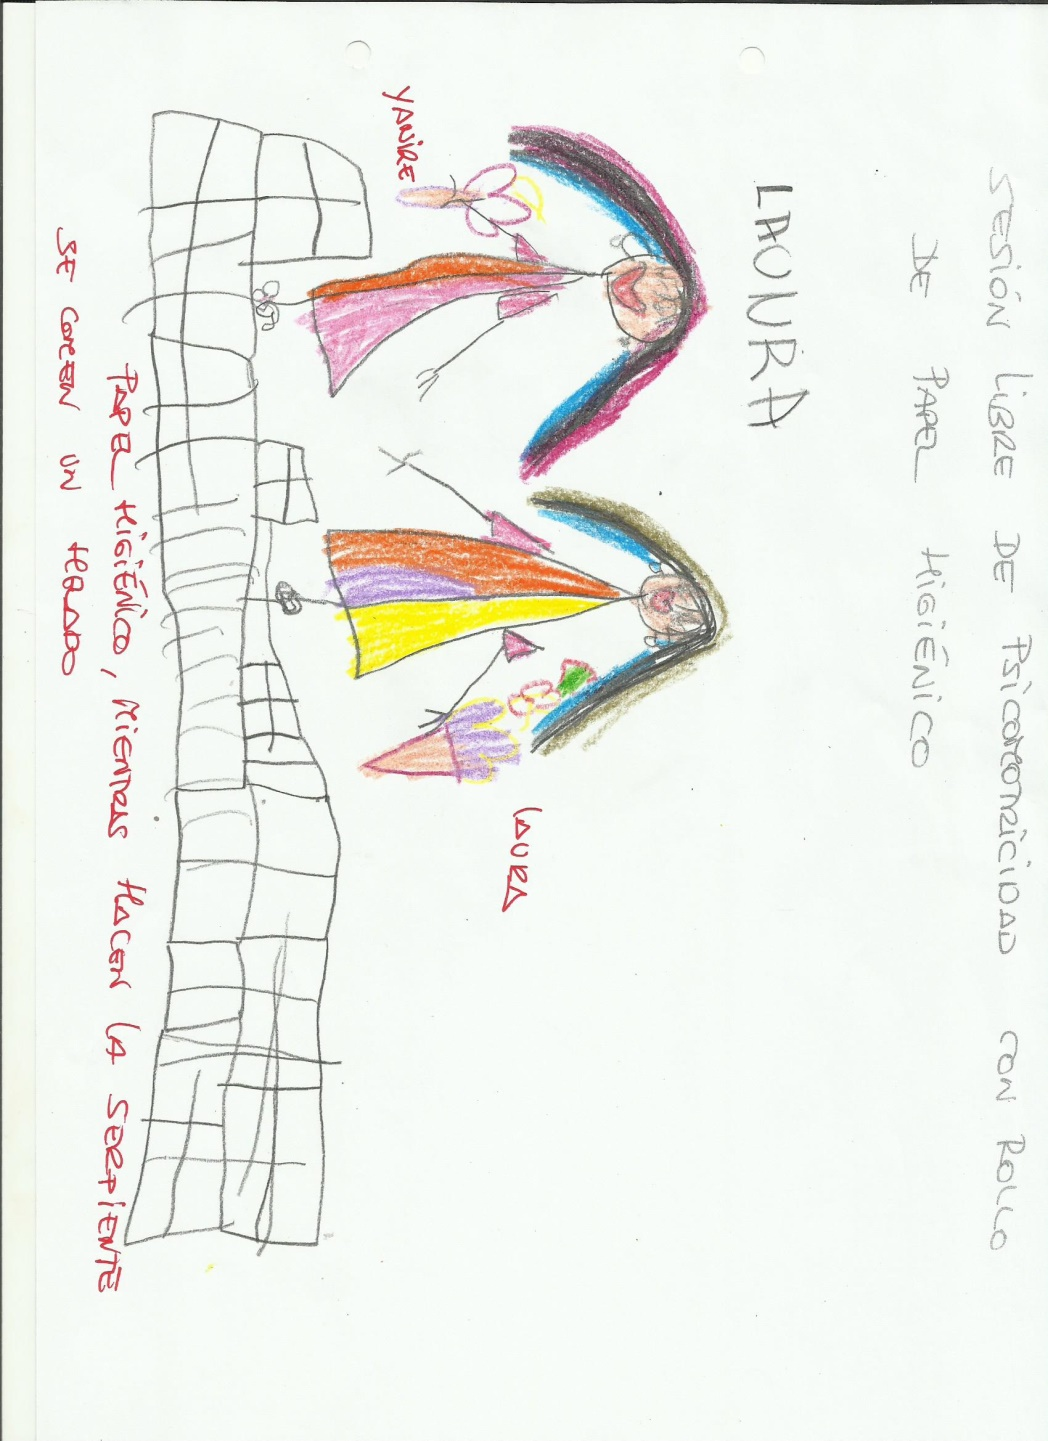 SESIÓN LIBRE DE PSICOMOTRICIDAD CON ROLLO
DE PAPEL HIGIÉNICO
LAOURA
LAURA
YANIRE
PAPEL HIGIÉNICO, MIENTRAS HACEN LA SERPIENTE
SE COMEN UN HELADO